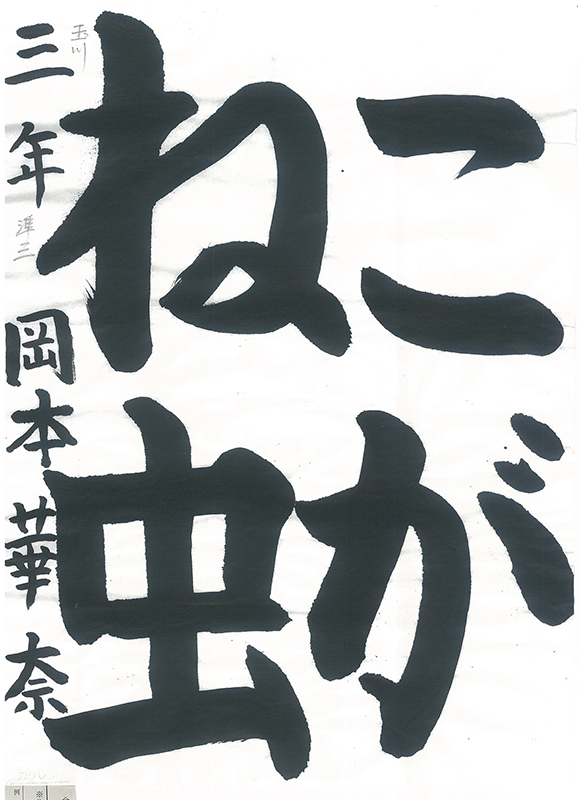 こが
ね虫
三年 岡本華奈
玉川
準三